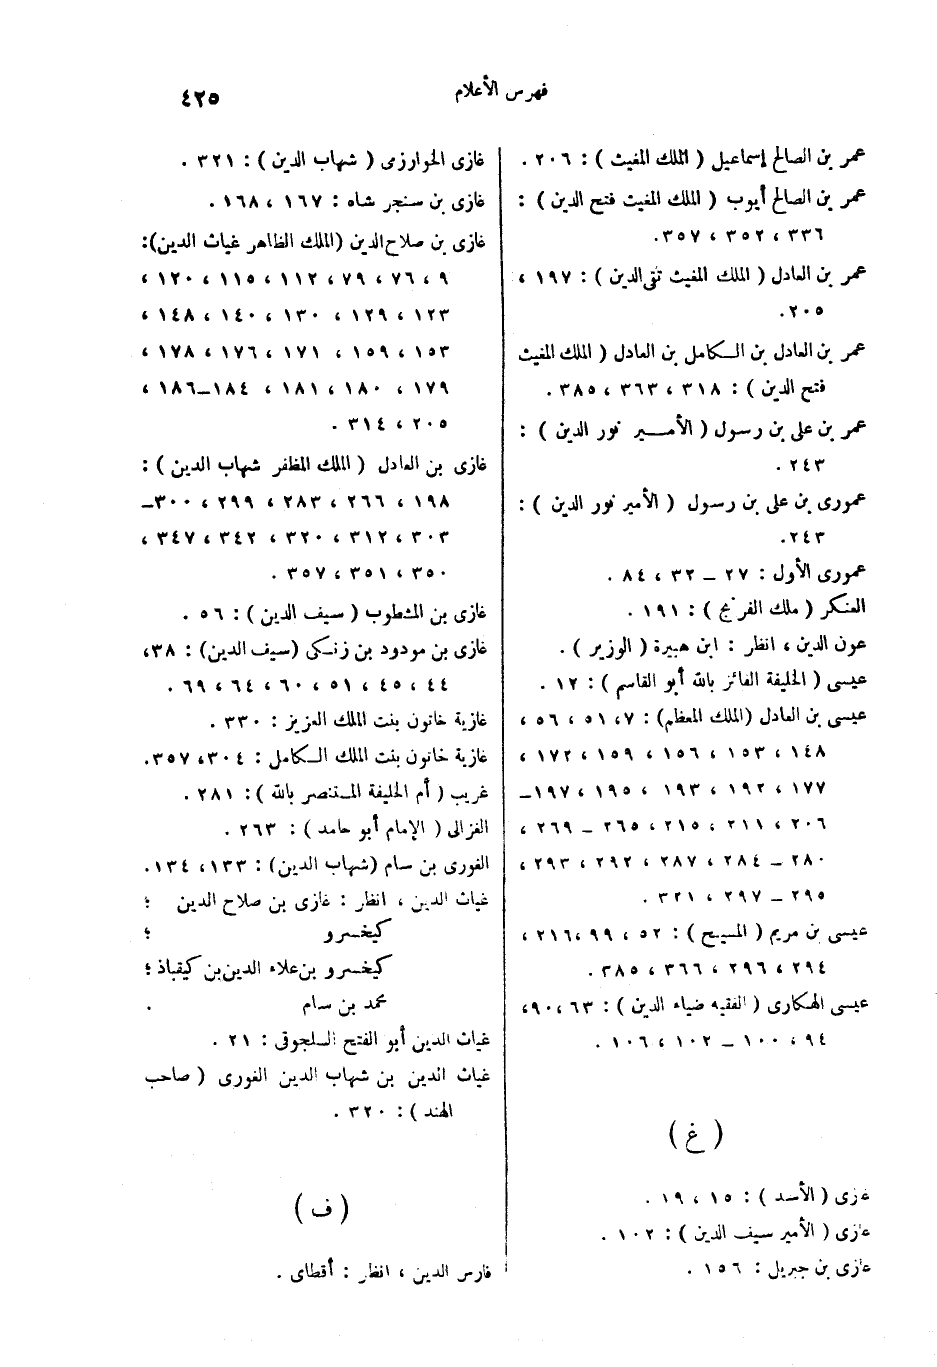 فهرس الأعلام
٤٢٥
عمر بن الصالح إسماعيل ( الملك المغيث ) : ٢٠٦ .
عمر بن الصالح أيوب ( الملك المغيث فتح الدين ) :
٣٣٦ ، ٣٥٢ ، ٣٥٧.
عمر بن العادل ( الملك المغيث تقى الدين ) : ١٩٧ ،
٢٠٥.
عمر بن العادل بن الكامل بن العادل ( الملك المغيث
فتح الدين ) : ٣١٨ ، ٣٦٣ ، ٣٨٥ .
عمر بن على بن رسول ( الأمير نور الدين ) :
٢٤٣ .
عمورى بن على بن رسول ( الأمير نور الدين ) :
٢٤٣.
عمورى الأول : ٢٧ – ٣٢ ، ٨٤ .
العنكر ( ملك الفرنج ) : ١٩١ .
عون الدين ، انظر : ابن هبيرة ( الوزير ) .
عيسى ( الخليفة الفائز بالله أبو القاسم ) : ١٢ .
عيسى بن العادل (الملك المعظم) : ٧، ٥١ ، ٥٦ ،
١٤٨ ، ١٥٣ ، ١٥٦ ، ١٥٩ ، ١٧٢ ،
١٧٧ ، ١٩٢ ، ١٩٣ ، ١٩٥ ، ١٩٧–
٢٠٦ ، ٢١١ ، ٢١٥ ، ٢٦٥ – ٢٦٩ ،
٢٨٠ – ٢٨٤ ، ٢٨٧ ، ٢٩٢ ، ٢٩٣ ،
٢٩٥ – ٢٩٧ ، ٣٢١ .
عيسى بن مريم ( المسيح ) : ٥٢ ، ٩٩ ،٢١٦ ،
٢٩٤ ، ٢٩٦ ، ٣٦٦ ، ٣٨٥ .
عيسى الهكارى ( الفقيه ضياء الدين ) : ٦٣ ،٩٠،
٩٤ ، ١٠٠ – ١٠٢ ، ١٠٦ .
( غ )
غازى ( الأسد ) : ١٥ ، ١٩ .
غازى ( الأمير سيف الدين ) : ١٠٢ .
غازى بن جبريل : ١٥٦ .
غازى الخوارزمى ( شهاب الدين ) : ٣٢١ .
غازى بن سنجر شاه : ١٦٧ ، ١٦٨ .
غازى بن صلاح الدين (الملك الظاهر غياث الدين):
٩ ، ٧٦ ، ٧٩ ، ١١٢ ، ١١٥ ، ١٢٠ ،
١٢٣ ، ١٢٩ ، ١٣٠ ، ١٤٠ ، ١٤٨ ،
١٥٣ ، ١٥٩ ، ١٧١ ، ١٧٦ ، ١٧٨ ،
١٧٩ ، ١٨٠ ، ١٨١ ، ١٨٤–١٨٦ ،
٢٠٥ ، ٣١٤ .
غازى بن العادل ( الملك المظفر شهاب الدين ) :
١٩٨ ، ٢٦٦ ، ٢٨٣ ، ٢٩٩ ، ٣٠٠–
٣٠٣ ، ٣١٢ ، ٣٢٠ ، ٣٤٢ ، ٣٤٧ ،
٣٥٠ ، ٣٥١ ، ٣٥٧ .
غازى بن المشطوب ( سيف الدين ) : ٥٦ .
غازى بن مودود بن زنكى (سيف الدين) : ٣٨،
٤٤ ، ٤٥ ، ٥١ ، ٦٠ ، ٦٤ ، ٦٩ .
غازية خاتون بنت الملك العزيز : ٣٣٠ .
غازية خاتون بنت الملك الكامل : ٣٠٤ ، ٣٥٧.
غريب ( أم الخليفة المستنصر بالله ) : ٢٨١ .
الغزالى ( الإمام أبو حامد ) : ٢٦٣ .
الغورى بن سام (شهاب الدين) : ١٣٣ ، ١٣٤.
غياث الدين ، انظر : غازى بن صلاح الدين ؛
كيخسرو ؛
كيخسرو بن علاء الدين بن كيقباذ ؛
محمد بن سام .
غياث الدين أبو الفتح السلجوقى : ٢١ .
غياث الدين بن شهاب الدين الغورى ( صاحب
الهند ) : ٣٢٠ .
( ف )
فارس الدين ، انظر : أقطاى .